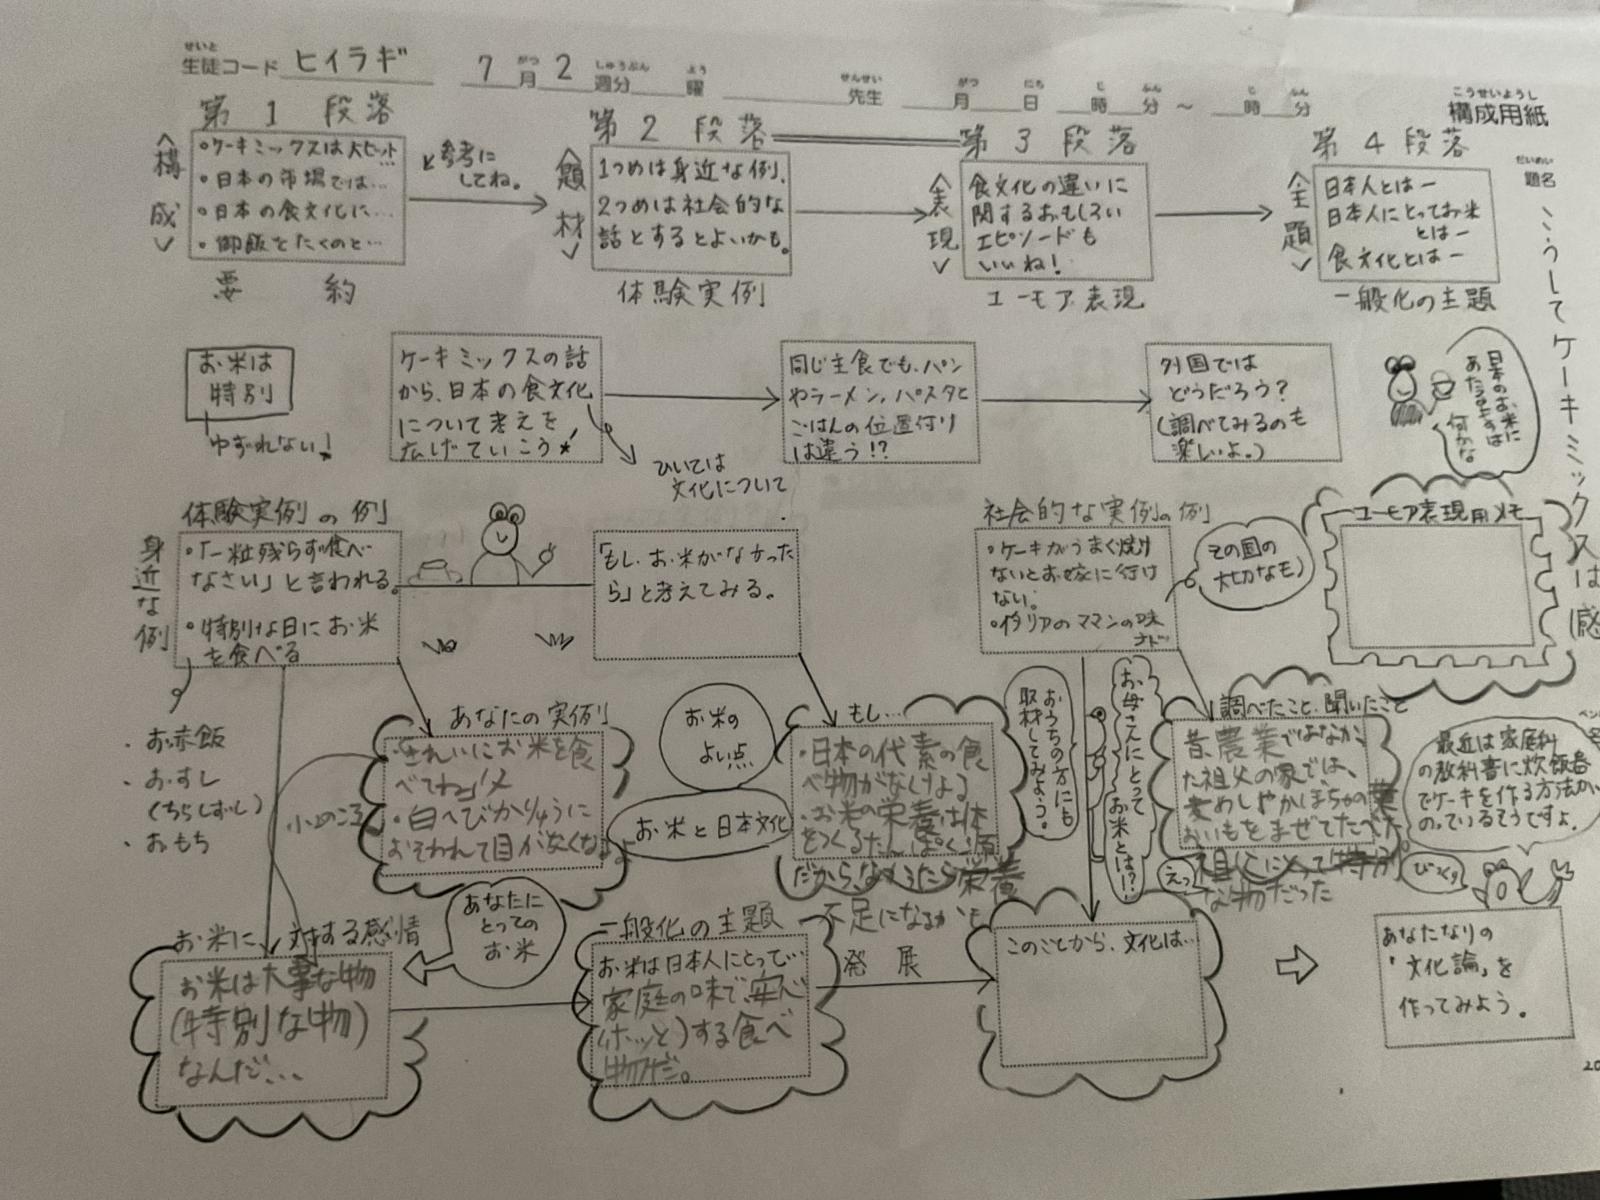 せいと
生徒コード ヒイラギ 7月 2週分 曜 先生 月 日 時 分 ～ 時 分
がつ しゅうぶん よう せんせい がつ にち じ ふん じ ふん
こうせいようし
構成用紙
だいめい
題名
第1段落
＜構成＞
・ケーキミックスは大ヒット…
・日本の市場では…
・日本の食文化に…
・御飯をたくのと…
要約
と参考に
してね。
第2段落
＜題材＞
1つめは身近な例、
2つめは社会的な
話とするとよいかも。
体験実例
第3段落
＜表現＞
食文化の違いに
関するおもしろい
エピソードも
いいね！
ユーモア表現
第4段落
＜主題＞
日本人とはー
日本人にとってお米
とはー
食文化とはー
一般化の主題
こうしてケーキミックスは感
お米は
特別
ゆずれない！
ケーキミックスの話
から、日本の食文化
について考えを
広げていこう
ひいては
文化について
同じ主食でも、パン
やラーメン、パスタと
ごはんの位置付け
は違う!?
外国では
どうだろう？
(調べてみるのも
楽しいよ。)
日本のお米に
あたるものは
何かな
体験実例の例
身近な例
・「一粒残らず食べ
なさい」と言われる。
・特別な日にお米
を食べる
「もし、お米がなかった
ら」と考えてみる。
社会的な実例の例
・ケーキがうまく焼け
ないとお嫁に行け
ない。
・イタリアのママンの味
ナド…
その国の
大切なモノ
ユーモア表現用メモ
・お赤飯
・おすし
(ちらしずし)
・おもち
あなたの実例
・きれいにお米を食
べてね」
・白へびかりゅうに
おそわれて目が
お米の
よい点
お米と日本文化
もし…
・日本の代表の食
べ物がなくなる
・お米の栄養は体
をつくるたんぱく源
だから、なくなったら栄養
不足になるかも
おうちの方にも
取材してみよう。
お母さんにとって
お米とは?!
調べたこと、聞いたこと
昔、農業ではなかっ
た祖父の家では、
麦めしやかぼちゃの葉
おいもをまぜてたべた
祖父にとって特別
な物だった
えっ
最近は家庭科
の教科書に炊飯器
でケーキを作る方法が
のっているそうですよ。
びっくり
お米に対する感情
お米は大事な物
(特別な物)
なんだ…
あなたに
とっての
お米
一般化の主題
お米は日本人にとって…
家庭の味で、安心
(ホッと)する食べ
物だ。
発展
このことから、文化は…
あなたなりの
「文化論」を
作ってみよう。